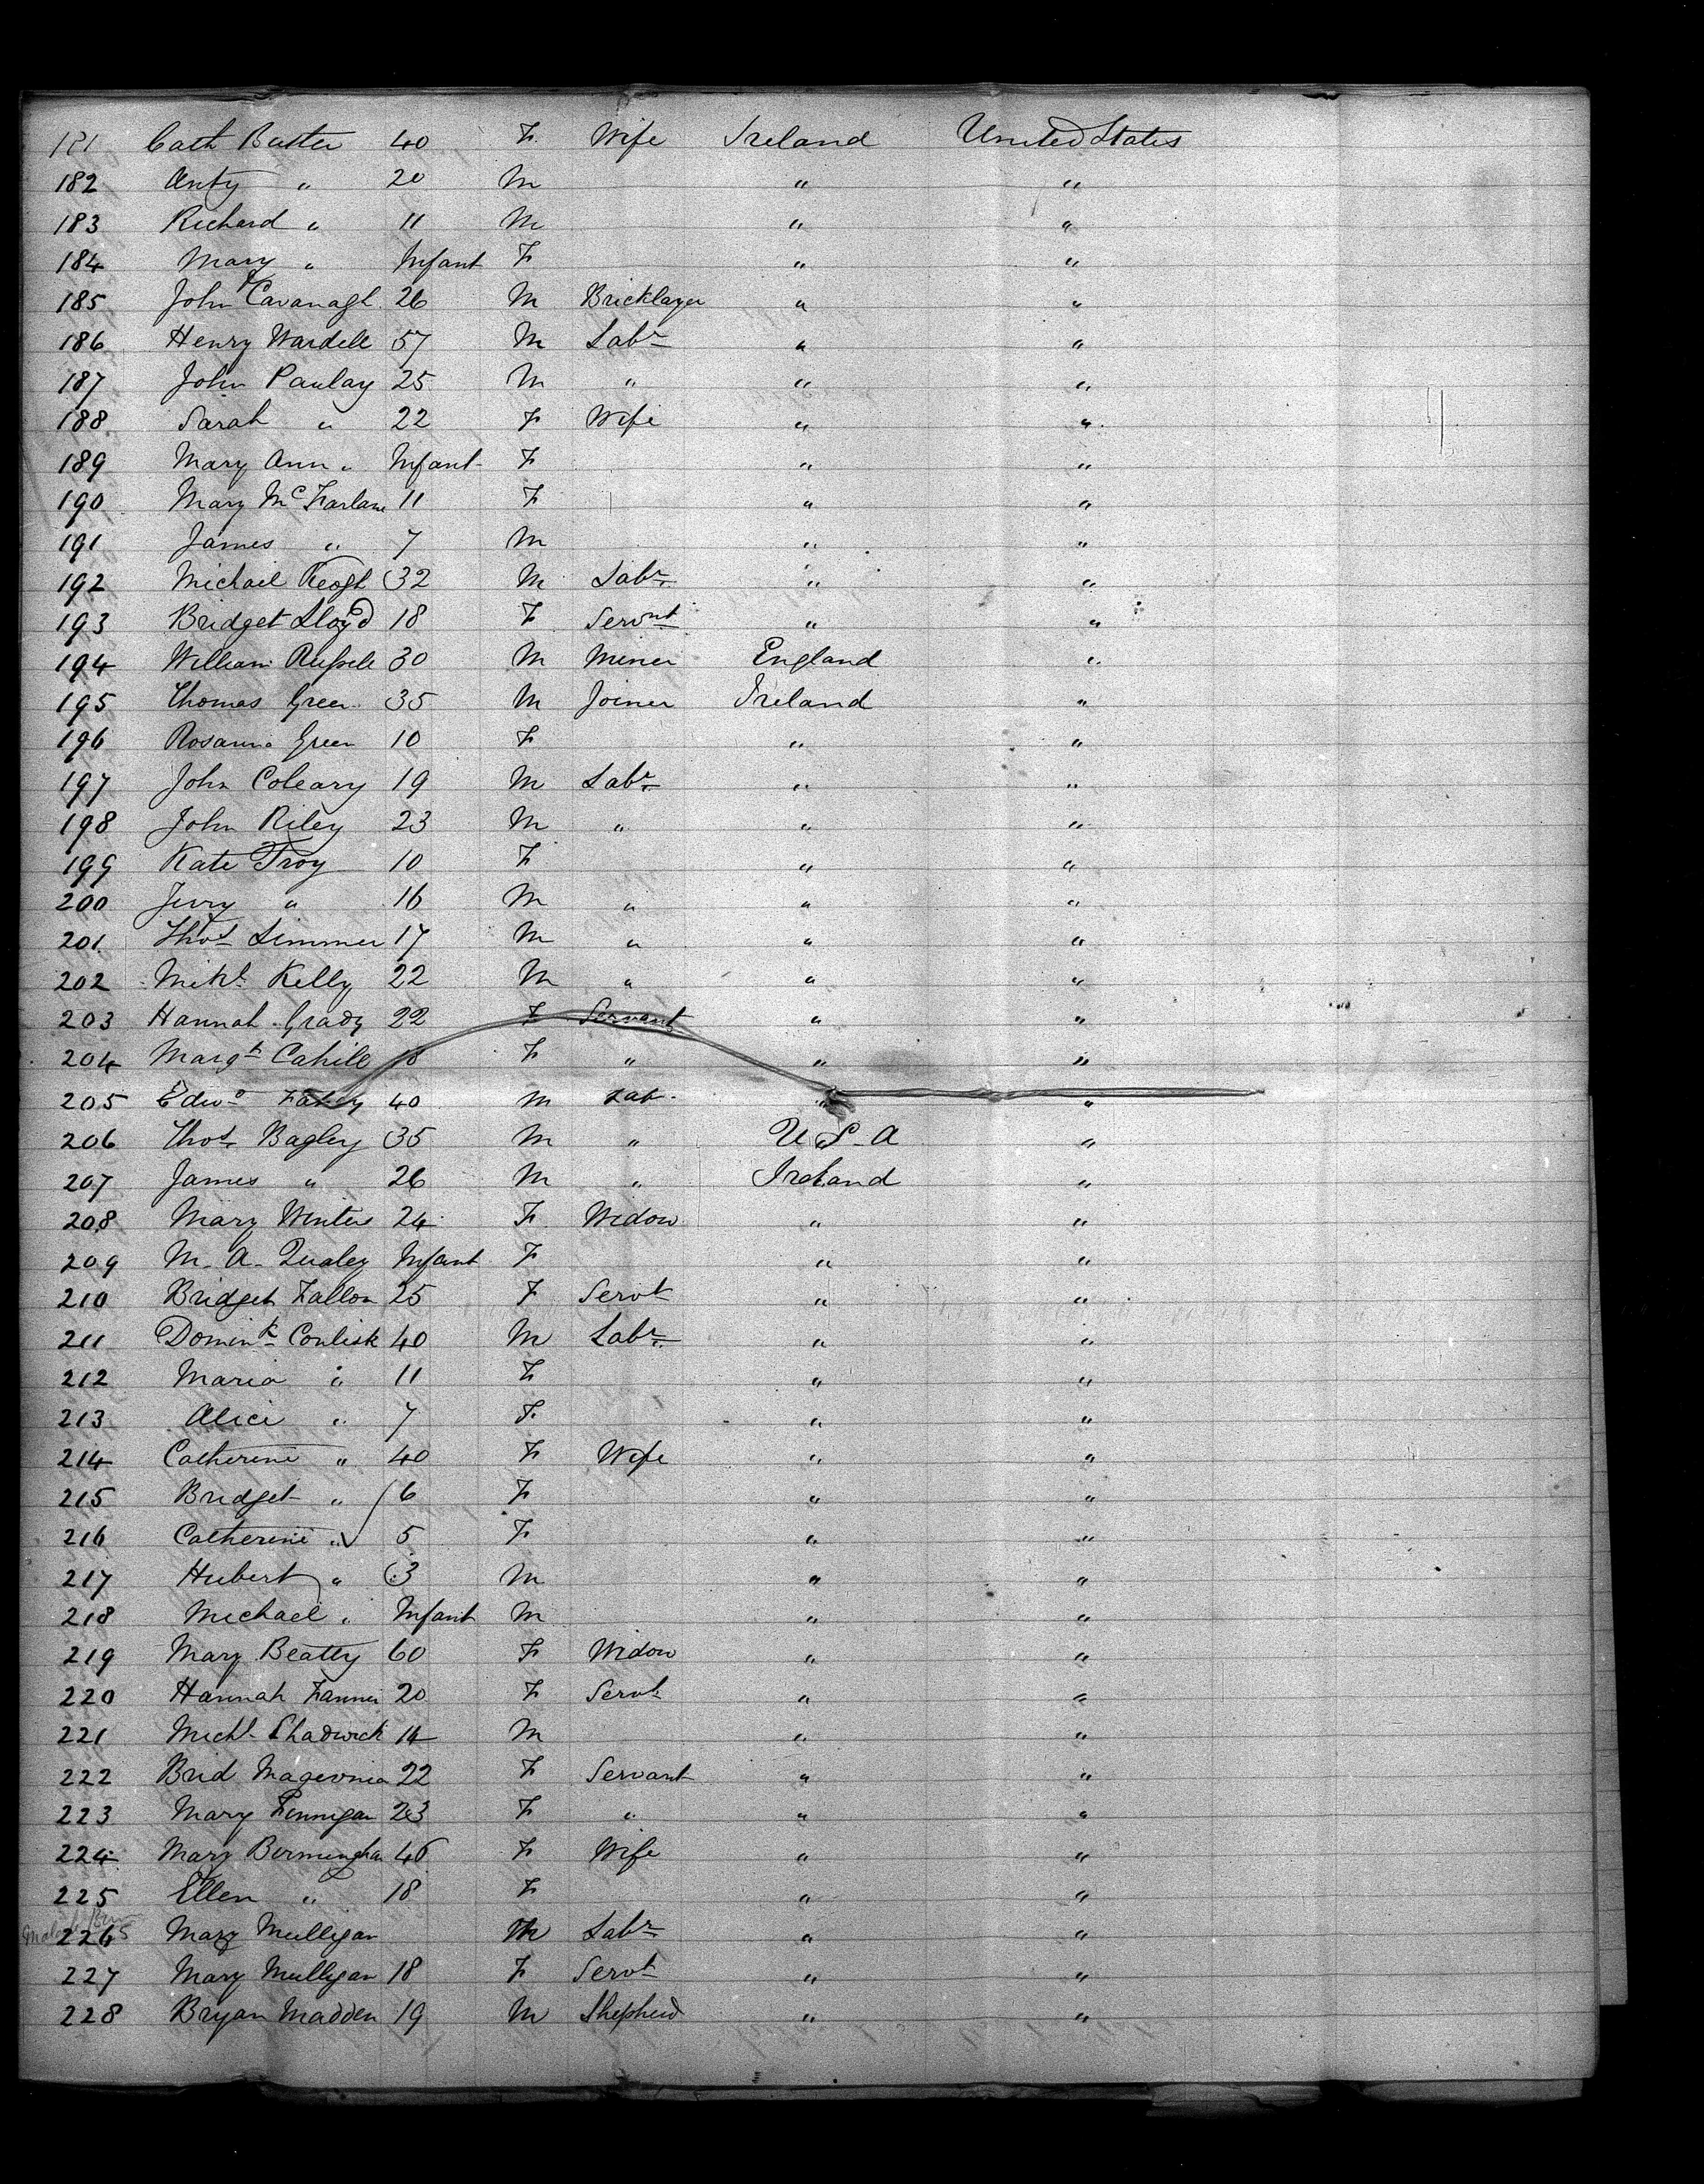 181 Cath Butler 40 F. Wife Ireland United States
182 Anty " 20 M " "
183 Richard " 11 M " "
184 Mary " Infant F " "
185 John Cavanagh 26 M Bricklayer " "
186 Henry Wardell 57 M Labr " "
187 John Paulay 25 M " " "
188 Sarah " 22 F Wife " "
189 Mary Ann " Infant F " "
190 Mary McFarlane 11 F " "
191 James " 7 M " "
192 Michael Keogh 32 M Labr " "
193 Bridget Lloyd 18 F Servnt " "
194 William Russell 30 M Miner England "
195 Thomas Green 35 M Joiner Ireland "
196 Rosanna Green 10 F " "
197 John Coleary 19 M Labr " "
198 John Riley 23 M " " "
199 Kate Troy 10 F " "
200 Jerry " 16 M " " "
201 Thos Limmer 17 M " " "
202 Mikl Kelly 22 M " " "
203 Hannah Grady 22 F Servant " "
204 Margt Cahill 18 F " " "
205 Edwd Fahey 40 M Lab. " "
206 Thos Bagley 35 M " U.S.A "
207 James " 26 M " Ireland "
208 Mary Winters 24 F. Widow " "
209 M. A. Qualey Infant F " "
210 Bridget Fallon 25 F Servt " "
211 Domink Conlisk 40 M Labr " "
212 Maria " 11 F " "
213 Alice " 7 F. " "
214 Catherine " 40 F Wife " "
215 Bridget " 6 F " "
216 Catherine " 5 F " "
217 Hubert " 3 M " "
218 Michael " Infant M " "
219 Mary Beatty 60 F Widow " "
220 Hannah 20 F Servt " "
221 Michl Chadwick 14 M " "
222 Brid 22 F Servant " "
223 Mary Finnigan 23 F " " "
224 Mary Bermingha 46 F Wife " "
225 Ellen " 18 F " "
226 Mary Mulligan M Labr " "
227 Mary Mulligan 18 F Servt " "
228 Bryan Madden 19 M Shepherd " "